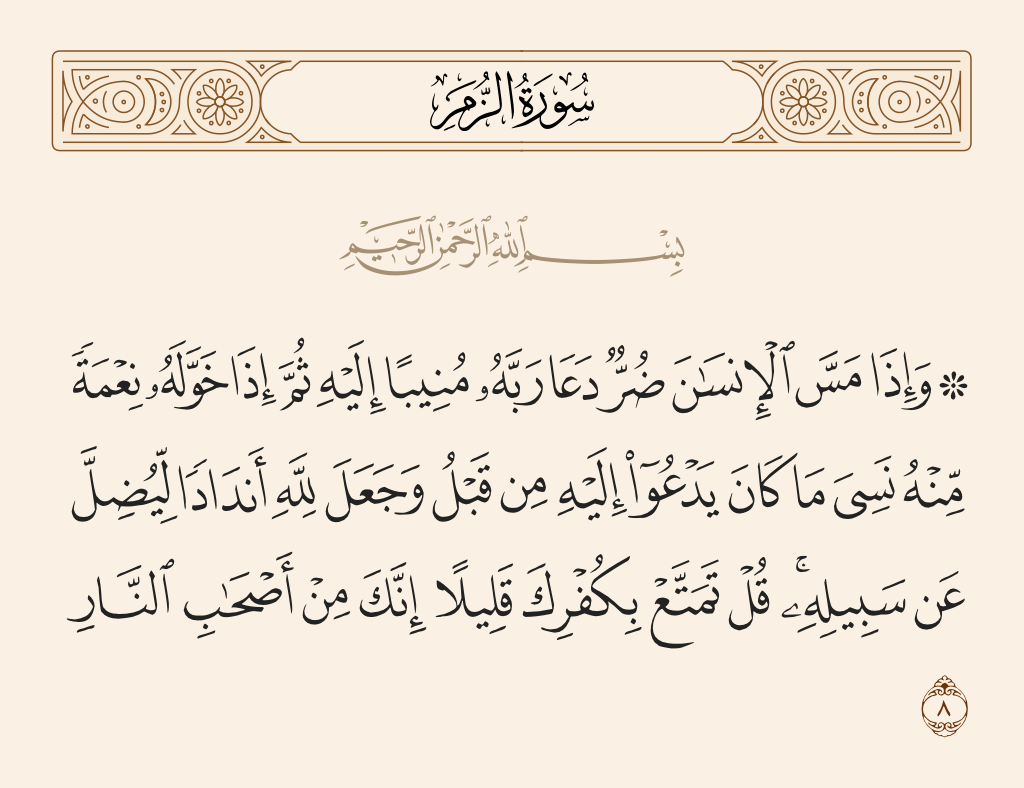 سُورَةُ الزُّمَرِ
بِسْمِ ٱللَّهِ ٱلرَّحْمَٰنِ ٱلرَّحِيمِ
۞ وَإِذَا مَسَّ ٱلْإِنسَٰنَ ضُرٌّ دَعَا رَبَّهُۥ مُنِيبًا إِلَيْهِ ثُمَّ إِذَا خَوَّلَهُۥ نِعْمَةً
مِّنْهُ نَسِىَ مَا كَانَ يَدْعُوٓا۟ إِلَيْهِ مِن قَبْلُ وَجَعَلَ لِلَّهِ أَندَادًا لِّيُضِلَّ
عَن سَبِيلِهِۦ ۚ قُلْ تَمَتَّعْ بِكُفْرِكَ قَلِيلًا إِنَّكَ مِنْ أَصْحَٰبِ ٱلنَّارِ
٨